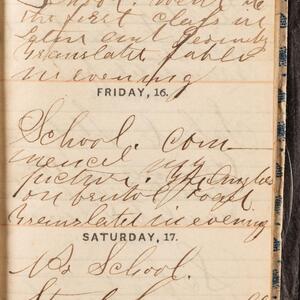 School. Went in
the first class in
Latin and Geometry
Translated fable
in evening
FRIDAY, 16.
School. Com-
menced my
picture.
on bristol board
Translated in evening
SATURDAY, 17.
No School.